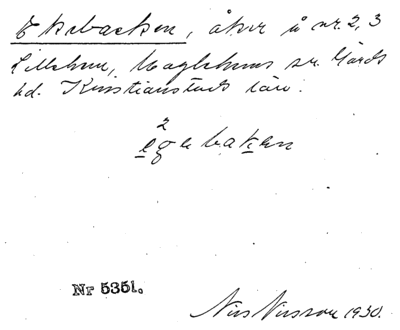 Ekebacken, åker å nr. 2, 3
Lillehem, Maglehems sn. Gärds
hd. Kristianstads län.
2
egebaken
Nr 5351.
Nils Nilsson 1930.